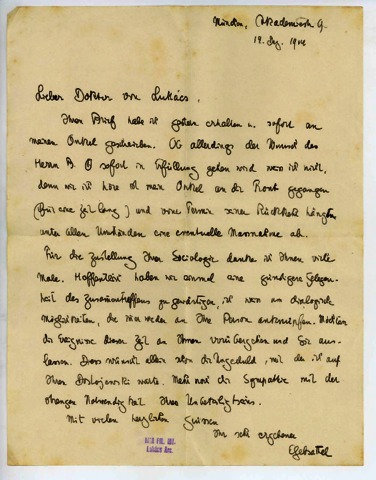 München, Akademiestr. 9
19. Dez. 19
Lieber Doktor von Lukács,
Ihren Brief habe ich gestern erhalten u. sofort an
meinen Onkel geschrieben. Ob allerdings der Wunsch des
Herrn B. sofort in Erfüllung gehen wird weiss ich nicht,
denn wie ich höre ist mein Onkel an die Front gegangen
(für eine Zeit lang) und vom Termin seiner Rückkehr hängt
unter allen Umständen eine eventuelle Massnahme ab.
Für die Zustellung Ihrer Sociologie danke ich Ihnen viele
Male. Hoffentlich haben wir einmal eine günstigere Gelegen-
heit des Zusammentreffens zu gewärtigen, ich an
Möglichkeiten, die an Ihre Person anknüpfen. Möchten
die Ereignisse dieser Zeit an Ihnen vorübergehen und Sie aus-
lassen. Dies wünscht allein schon die Ungeduld, mit der ich auf
Ihren Dostojewski warte. Mehr noch die Sympathie mit der
strengen Notwendigkeit Ihres
Mit vielen herzlichen Grüssen
Ihr sehr ergebener
Gebsattel
MTA FIL. INT.
Lukács Arc.